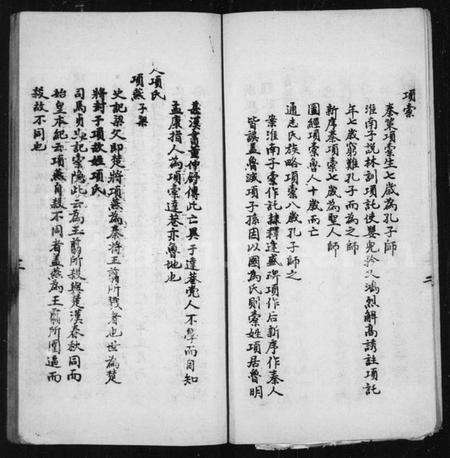 項橐
秦策項橐生七歲為孔子師
淮南子說林訓項託使嬰兒矜 又鴻烈解高誘註項託
年七歲窮難孔子而為之師
新序秦項橐七歲為聖人師
圖經項橐魯人十歲而亡
通志氏族略項橐八歲孔子師之
案淮南子橐作託隸釋逢盛碑項作后新序作秦人
皆誤蓋魯滅項子孫因以國為氏則橐姓項居魯明
甚漢書董仲舒傳此亡異于達巷黨人不學而自知
孟康指人為項橐達巷亦魯地也
人項氏
項燕 子梁
史記梁父即楚將項燕為秦將王翦所戮者也世為楚
將封于項故姓項氏
司馬貞史記索隱此云為王翦所殺與楚漢春秋同而
始皇本紀云項燕自殺不同者蓋燕為王翦所圍逼而
殺故不同也
二